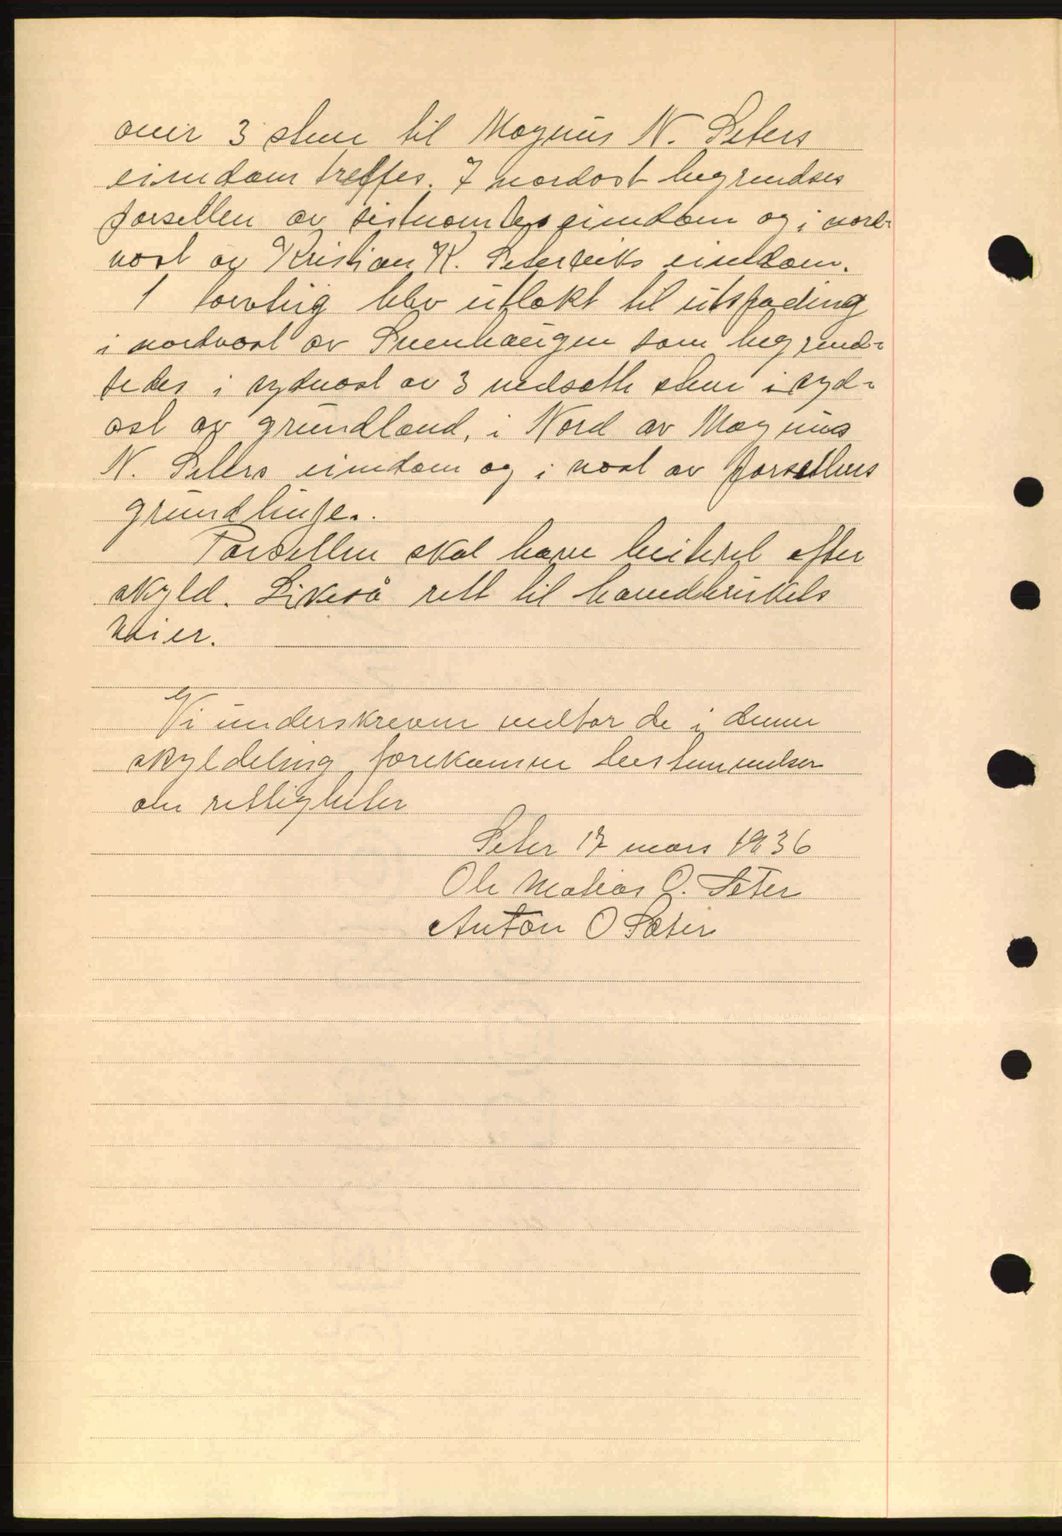 over 3 stene til Magnus N. Seters
eiendom treffes. I nordost begrendses
parsellen av sistnevntes eiendom og i nord-
vest av Kristian K. Seterviks eiendom.
1 torvteig blev utlakt til utspading
i nordvest av Svenhaugen som begrend-
sedes i sydvest av 3 nedsatte stene i syd-
ost av grundland, i Nord av Magnus
N. Seters eiendom og i vest av parsellens
grundlinje.
Parsellen skal have beiteret efter
skyld. Likeså rett til havnebrukets
veier.
Vi underskrevne vedtar de i denne
skyldeling forekomne bestemmelser
om rettigheter
Seter 17 mars 1936
Ole Matias O. Seter
Anton O Sæter